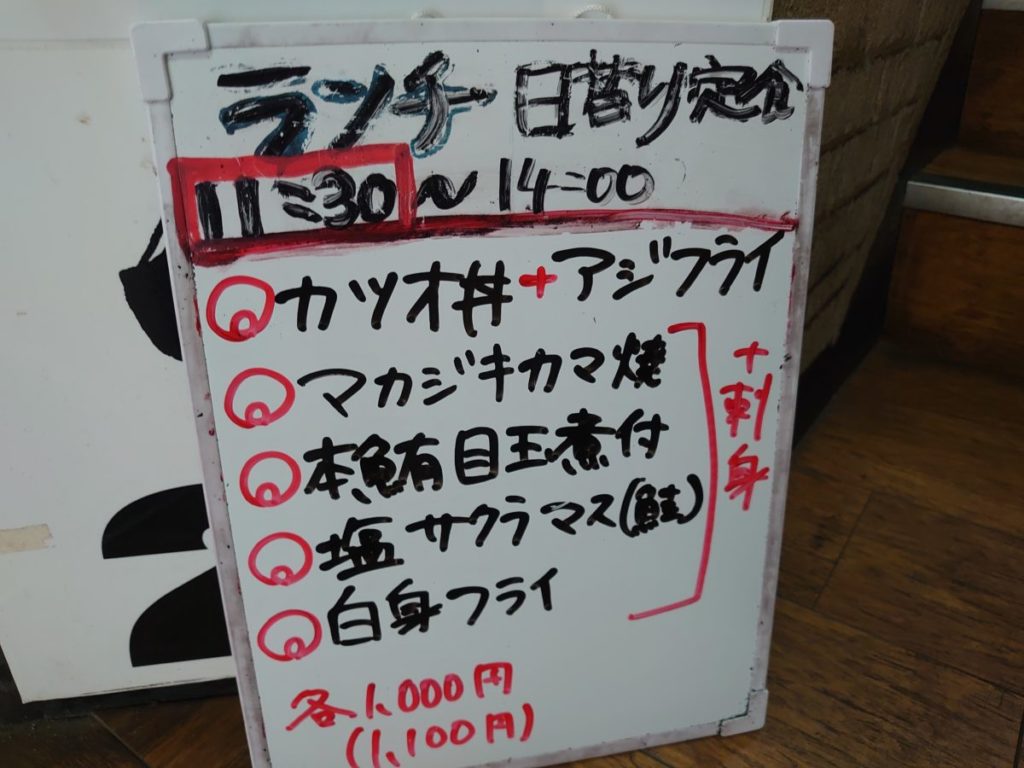 ランチ 日替り定食
11:30～14:00
カツオ丼+アジフライ
マカジキカマ焼
本鮪目玉煮付
塩サクラマス(鮭)
白身フライ
+刺身
各1,000円
(1,100円)